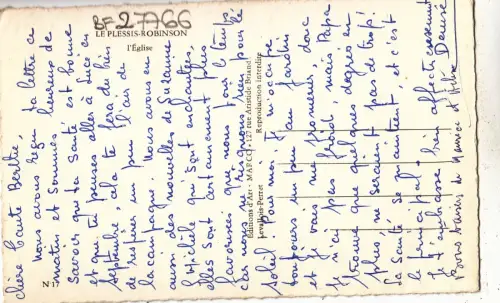 BF 27766
LE PLESSIS-ROBINSON
l'Église
Chère Tante Berthe,
Nous avons reçu ta lettre ce
matin et sommes heureux de
savoir que ta santé est bonne
et que tu penses aller à Sucé en
septembre, cela te fera du bien
de respirer un peu l'air de
la campagne. Nous avons eu
aussi des nouvelles de Suzanne
et Michèle qui sont enchantées,
elles sont certainement plus
favorisées que nous pour le temps
car nous ne risquons rien pour le
soleil. Pour moi, je m'occupe
toujours un peu au jardin
et je vais me promener, donc
je n'ai pas froid mais Papa
trouve que quelques degrés en
plus ne seraient pas de trop!
Sa santé se maintient, et c'est
le principal. Bien affectueusement
je t'embrasse. Denise
Bons baisers de Maurice et
Éditions d'Art - MARCO - 127 rue Aristide Briand
Levallois-Perret
Reproduction interdite
N